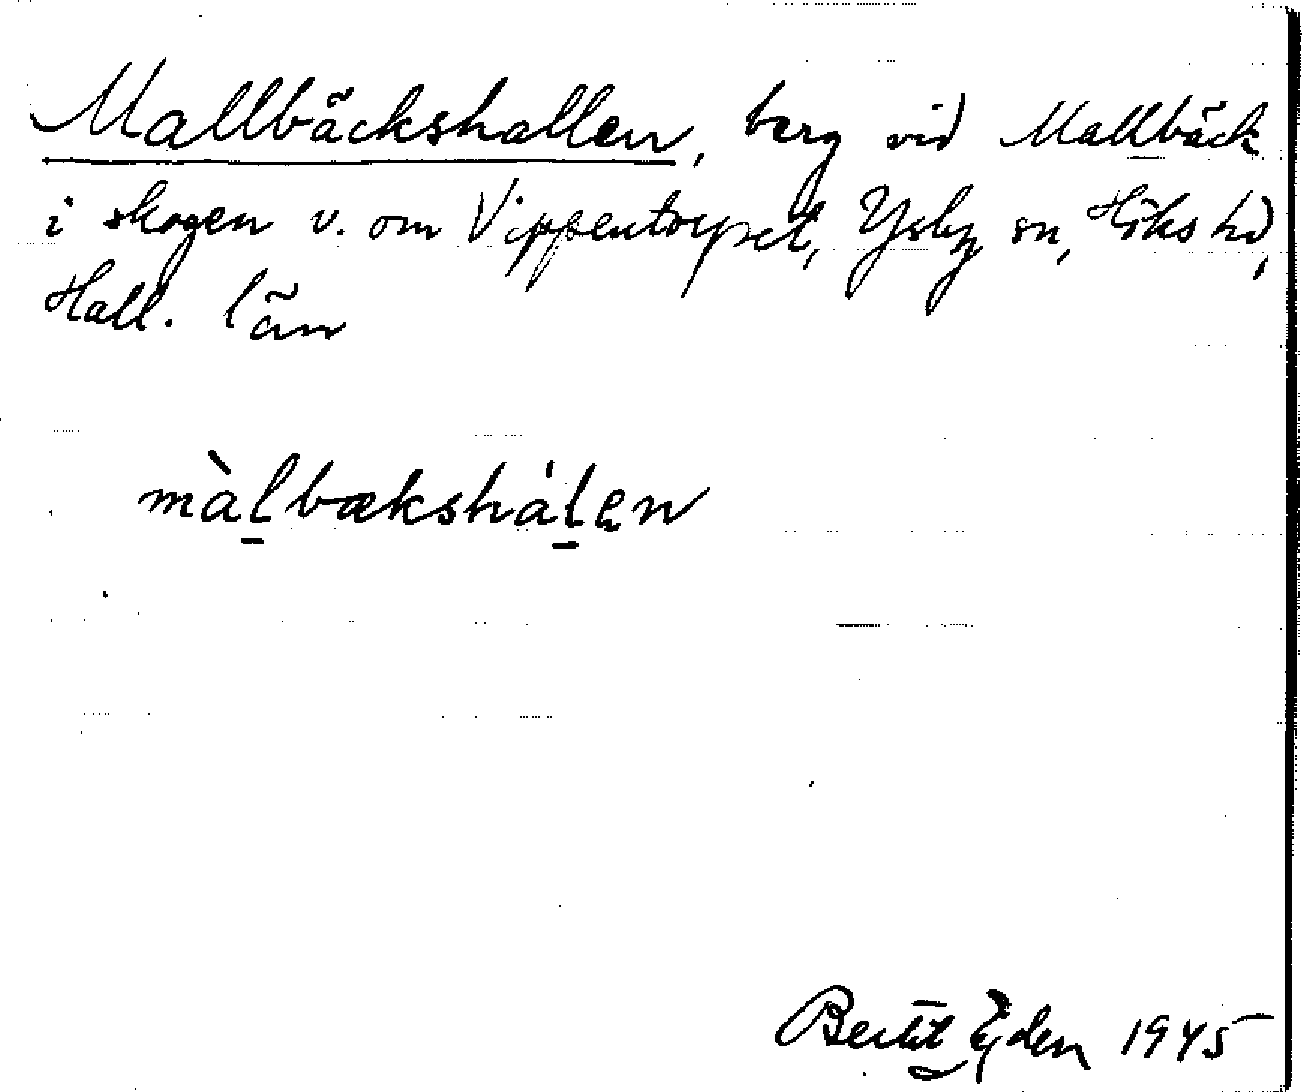 Mallbäckshallen, berg vid Mallbäck
i skogen v. om Vippentorpet, Ysby sn, Höks hd,
Hall. län
màl̠bækshál̠en
Bertil Ejder 1945